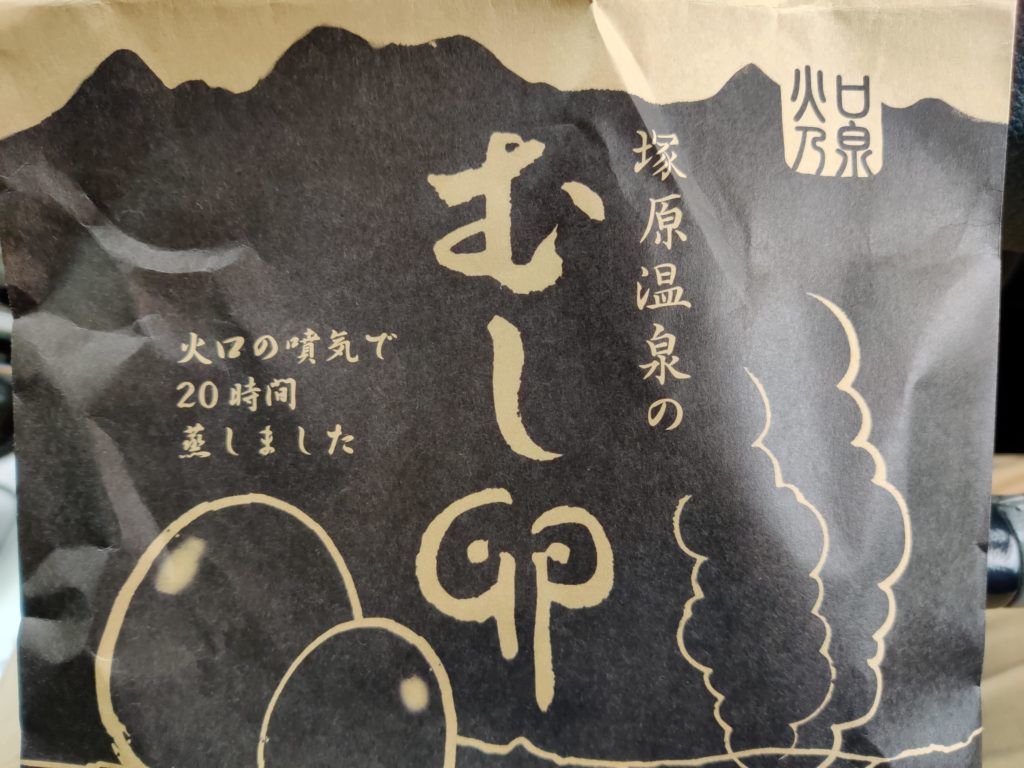 火口
乃泉
塚原温泉の
むし卵
火口の噴気で
20時間
蒸しました